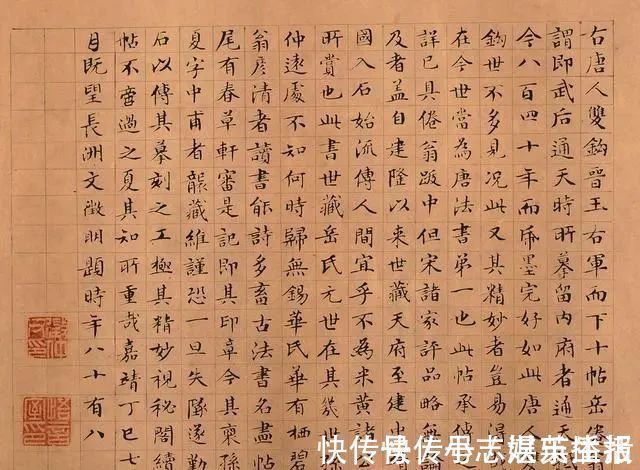 右唐人雙鈎晉王右軍而下十帖岳倦
謂即武后通天時所摹留內府者通天
今八百四十年而帋墨完好如此唐人
鈎世不多見況此又其精妙者豈易得
在今世當為唐法書第一也此帖承傳
詳已具倦翁跋中但宋諸家評品略無
及者蓋自建隆以來世藏天府至建中
國入石始流傳人間宜乎不為米黃諸
所賞也此書世藏岳氏元世在其幾世
仲遠處不知何時歸無錫華氏華有栖碧
翁彥清者讀書能詩多畜古法書名畫帖
尾有春草軒審是記即其印章今其裔孫
夏字中甫者襲藏維謹恐一旦失墜遂勒
石以傳其摹刻之工極其精妙視秘閣續
帖不啻過之夏其知所重哉嘉靖丁巳七
月既望長洲文徵明題時年八十有八
快传号